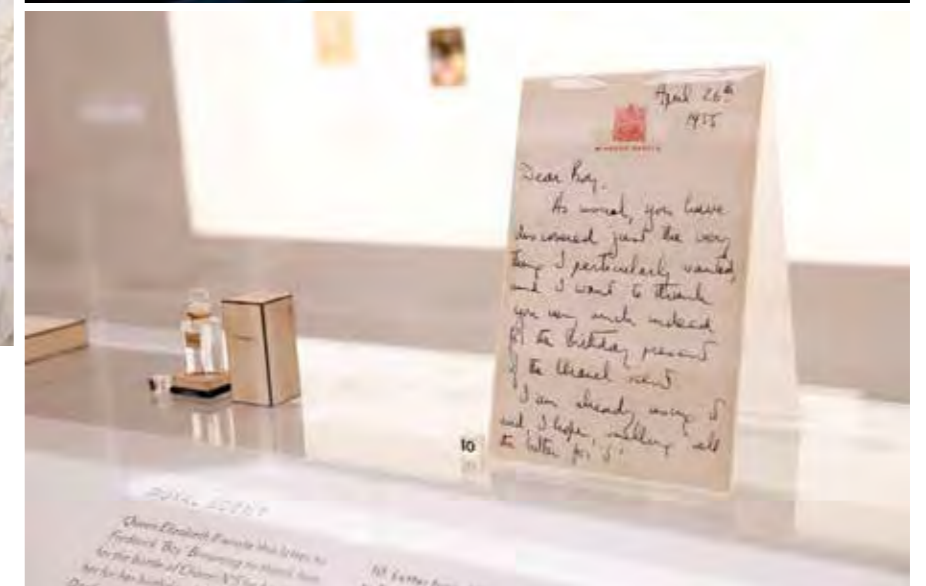 April 26th
1955
WINDSOR CASTLE
Dear Boy,
As usual, you have
discovered just the very
thing I particularly wanted,
and I want to thank
you very much indeed
for the birthday present
of the Chanel scent.
I am already using it
and, I hope, smelling all
the better for it!
10
ROYAL SCENT
Queen Elizabeth II wrote this letter to
Frederick 'Boy' Browning to thank him
for the bottle of Chanel N°5
her for her
10. Letter from